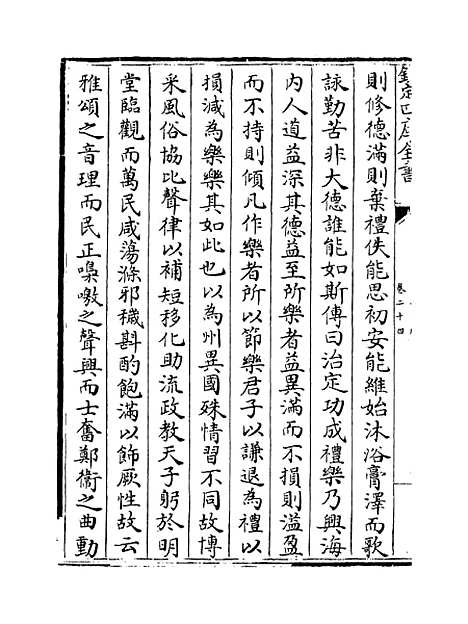 欽定四庫全書
卷二十四
則修德滿則棄禮佚能思初安能維始沐浴膏澤而歌
詠勤苦非大德誰能如斯傳曰治定功成禮樂乃興海
内人道益深其德益至所樂者益異滿而不損則溢盈
而不持則傾凡作樂者所以節樂君子以謙退為禮以
損減為樂樂其如此也以為州異國殊情習不同故博
采風俗協比聲律以補短移化助流政教天子躬於明
堂臨觀而萬民咸蕩滌邪穢斟酌飽滿以飾厥性故云
雅頌之音理而民正嘄噭之聲興而士奮鄭衞之曲動